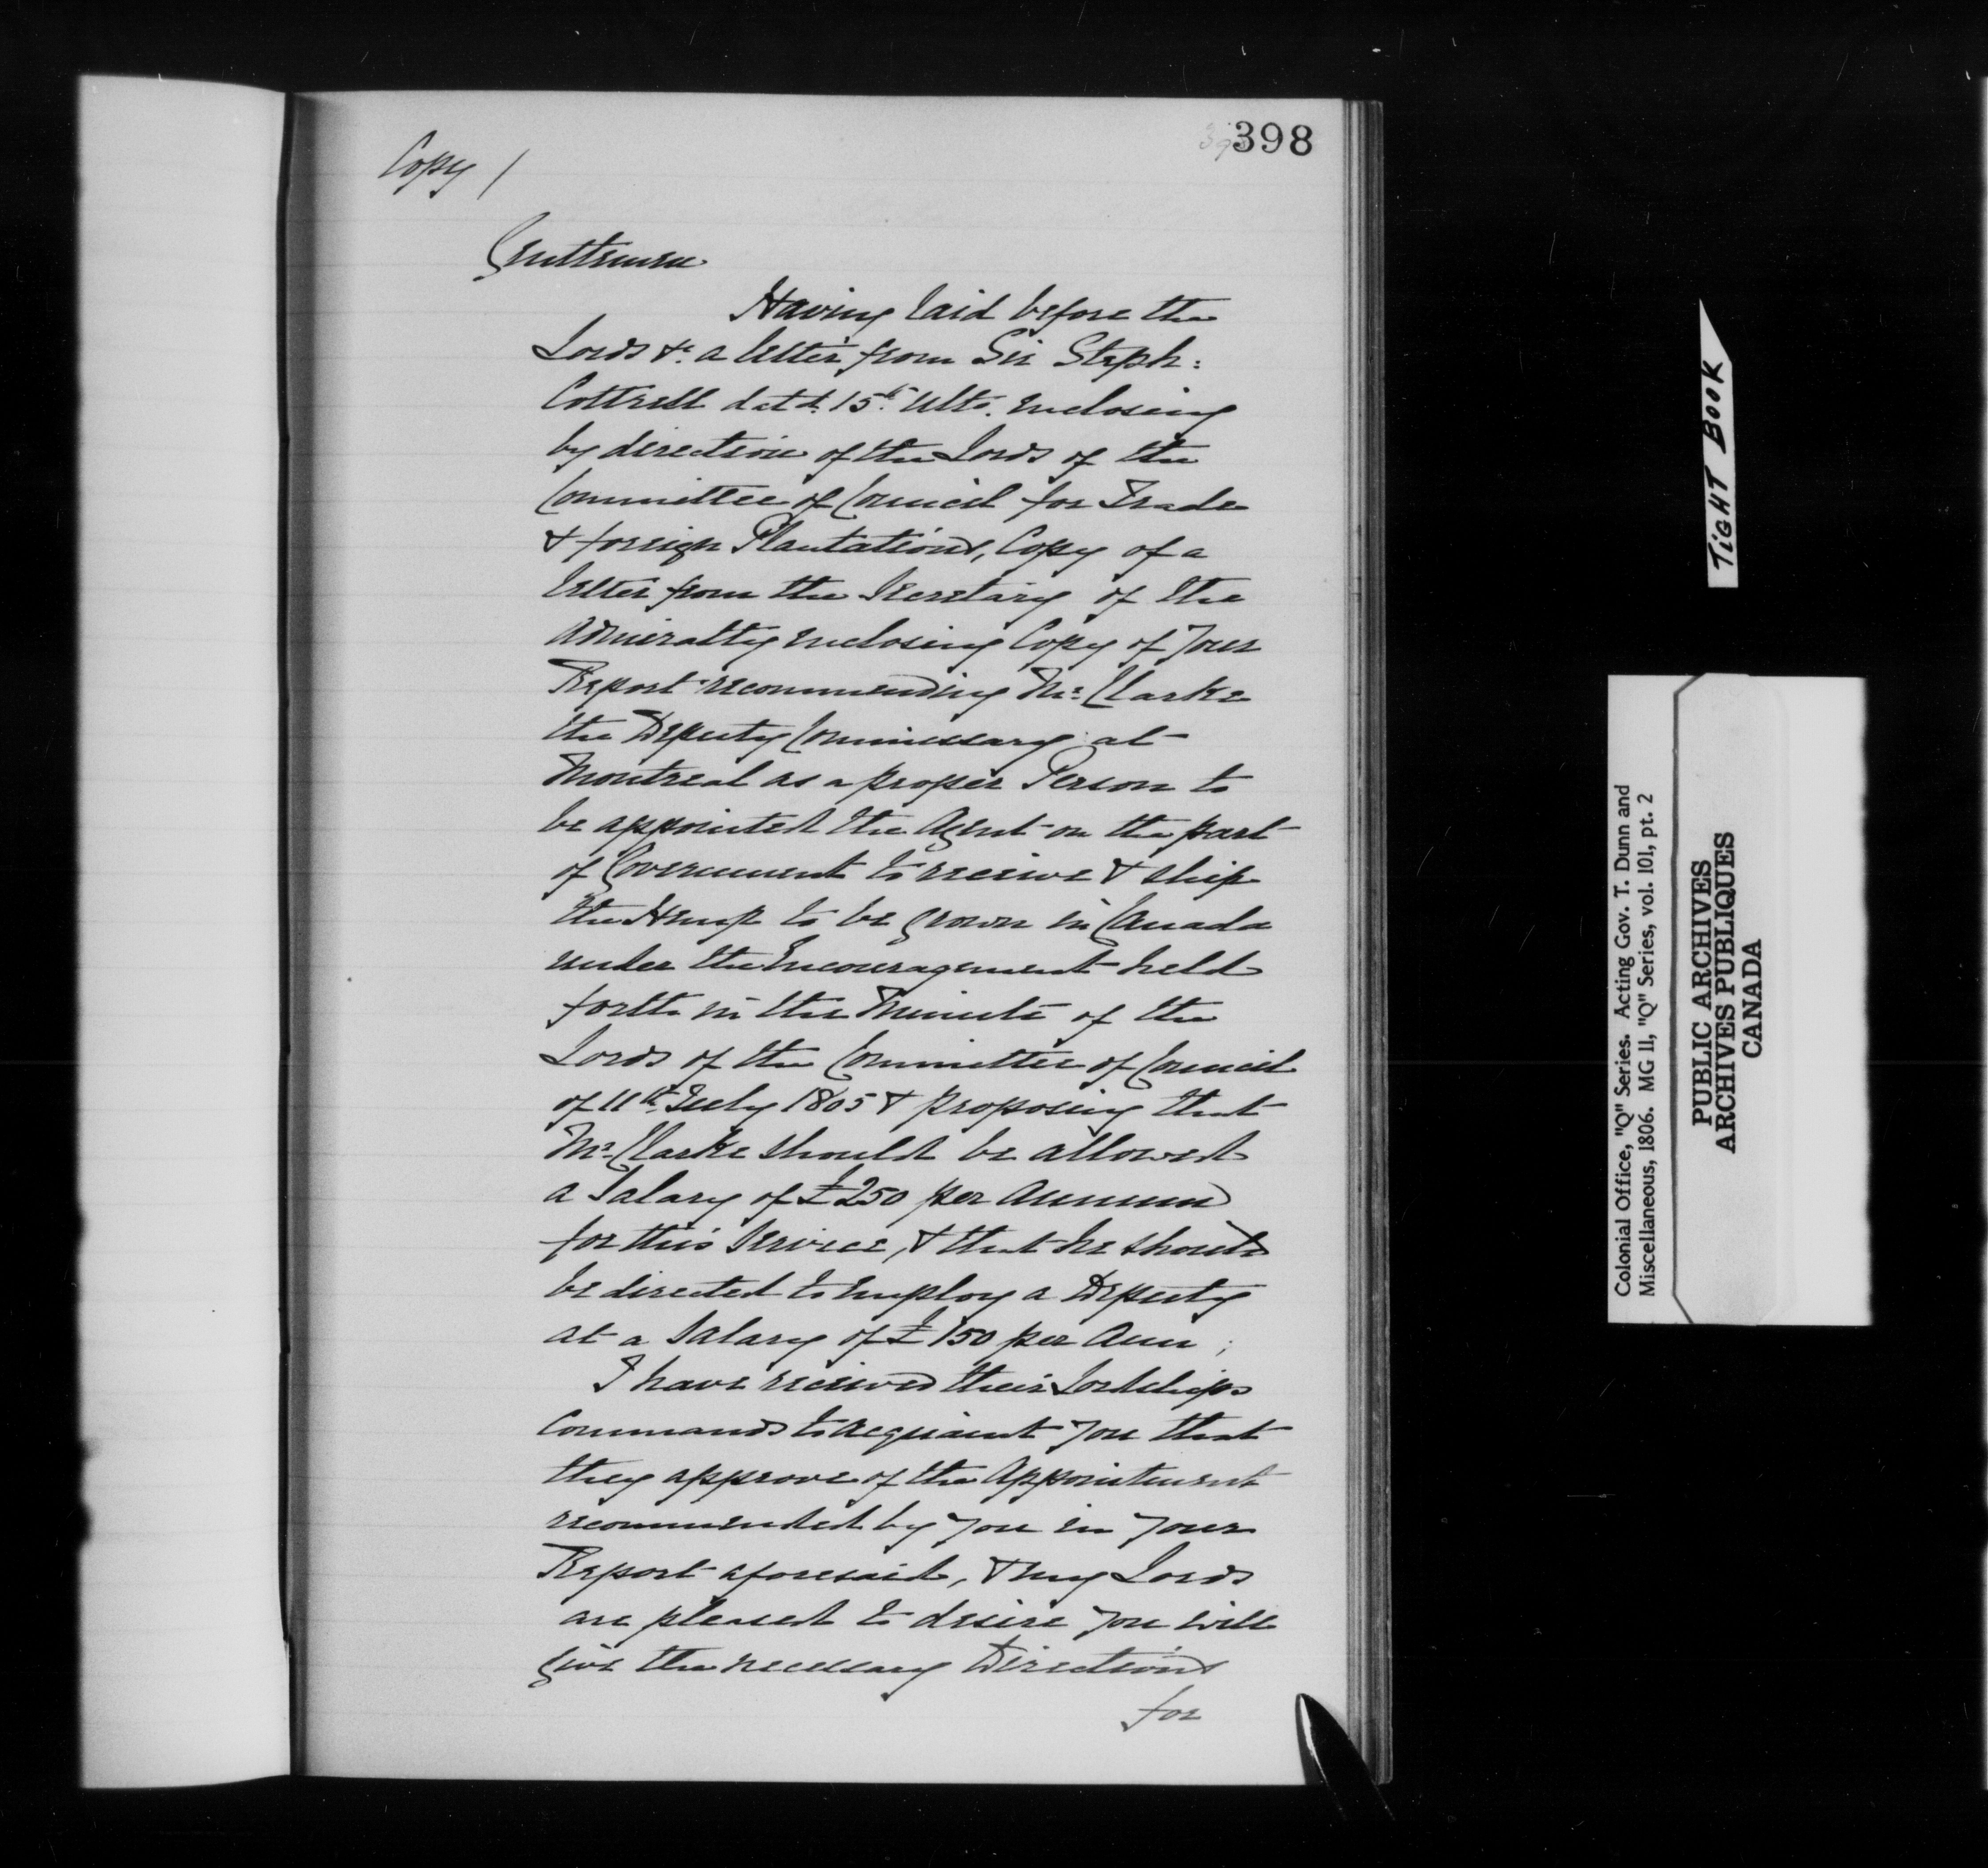 398
Copy /
Gentlemen
Having laid before the
Lords &c. a letter from Sir Steph:
Cottrell dat'd. 15th. Ulto. enclosing
by direction of the Lords of the
Committee of Council for Trade
& foreign Plantations, Copy of a
letter from the Secretary of the
Admiralty enclosing Copy of Your
Report recommending Mr. Clarke
the Deputy Commissary at
Montreal as a proper Person to
be appointed the Agent on the part
of Government to receive & ship
the Hemp to be grown in Canada
under the Encouragement held
forth in the Minute of the
Lords of the Committee of Council
of 11th. July 1805 & proposing that
Mr. Clarke should be allowed
a Salary of £250 per Annum
for this Service, & that he should
be directed to employ a Deputy
at a Salary of £150 per Ann;
I have received their Lordships
Commands to acquaint You that
they approve of the Appointment
recommended by You in Your
Report aforesaid, & my Lords
are pleased to desire You will
give the necessary Directions
for
TIGHT BOOK
Colonial Office, "Q" Series. Acting Gov. T. Dunn and
Miscellaneous, 1806. MG 11, "Q" Series, vol. 101, pt. 2
PUBLIC ARCHIVES
ARCHIVES PUBLIQUES
CANADA